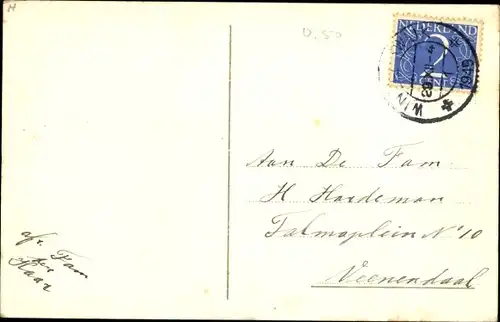 0.50
NEDERLAND
2
CENT
WIN
29 XII - 4
1949
Aan De Fam.
H Hardeman
Talmaplein No 10
Veenendaal
afz. Fam
ter
Haar